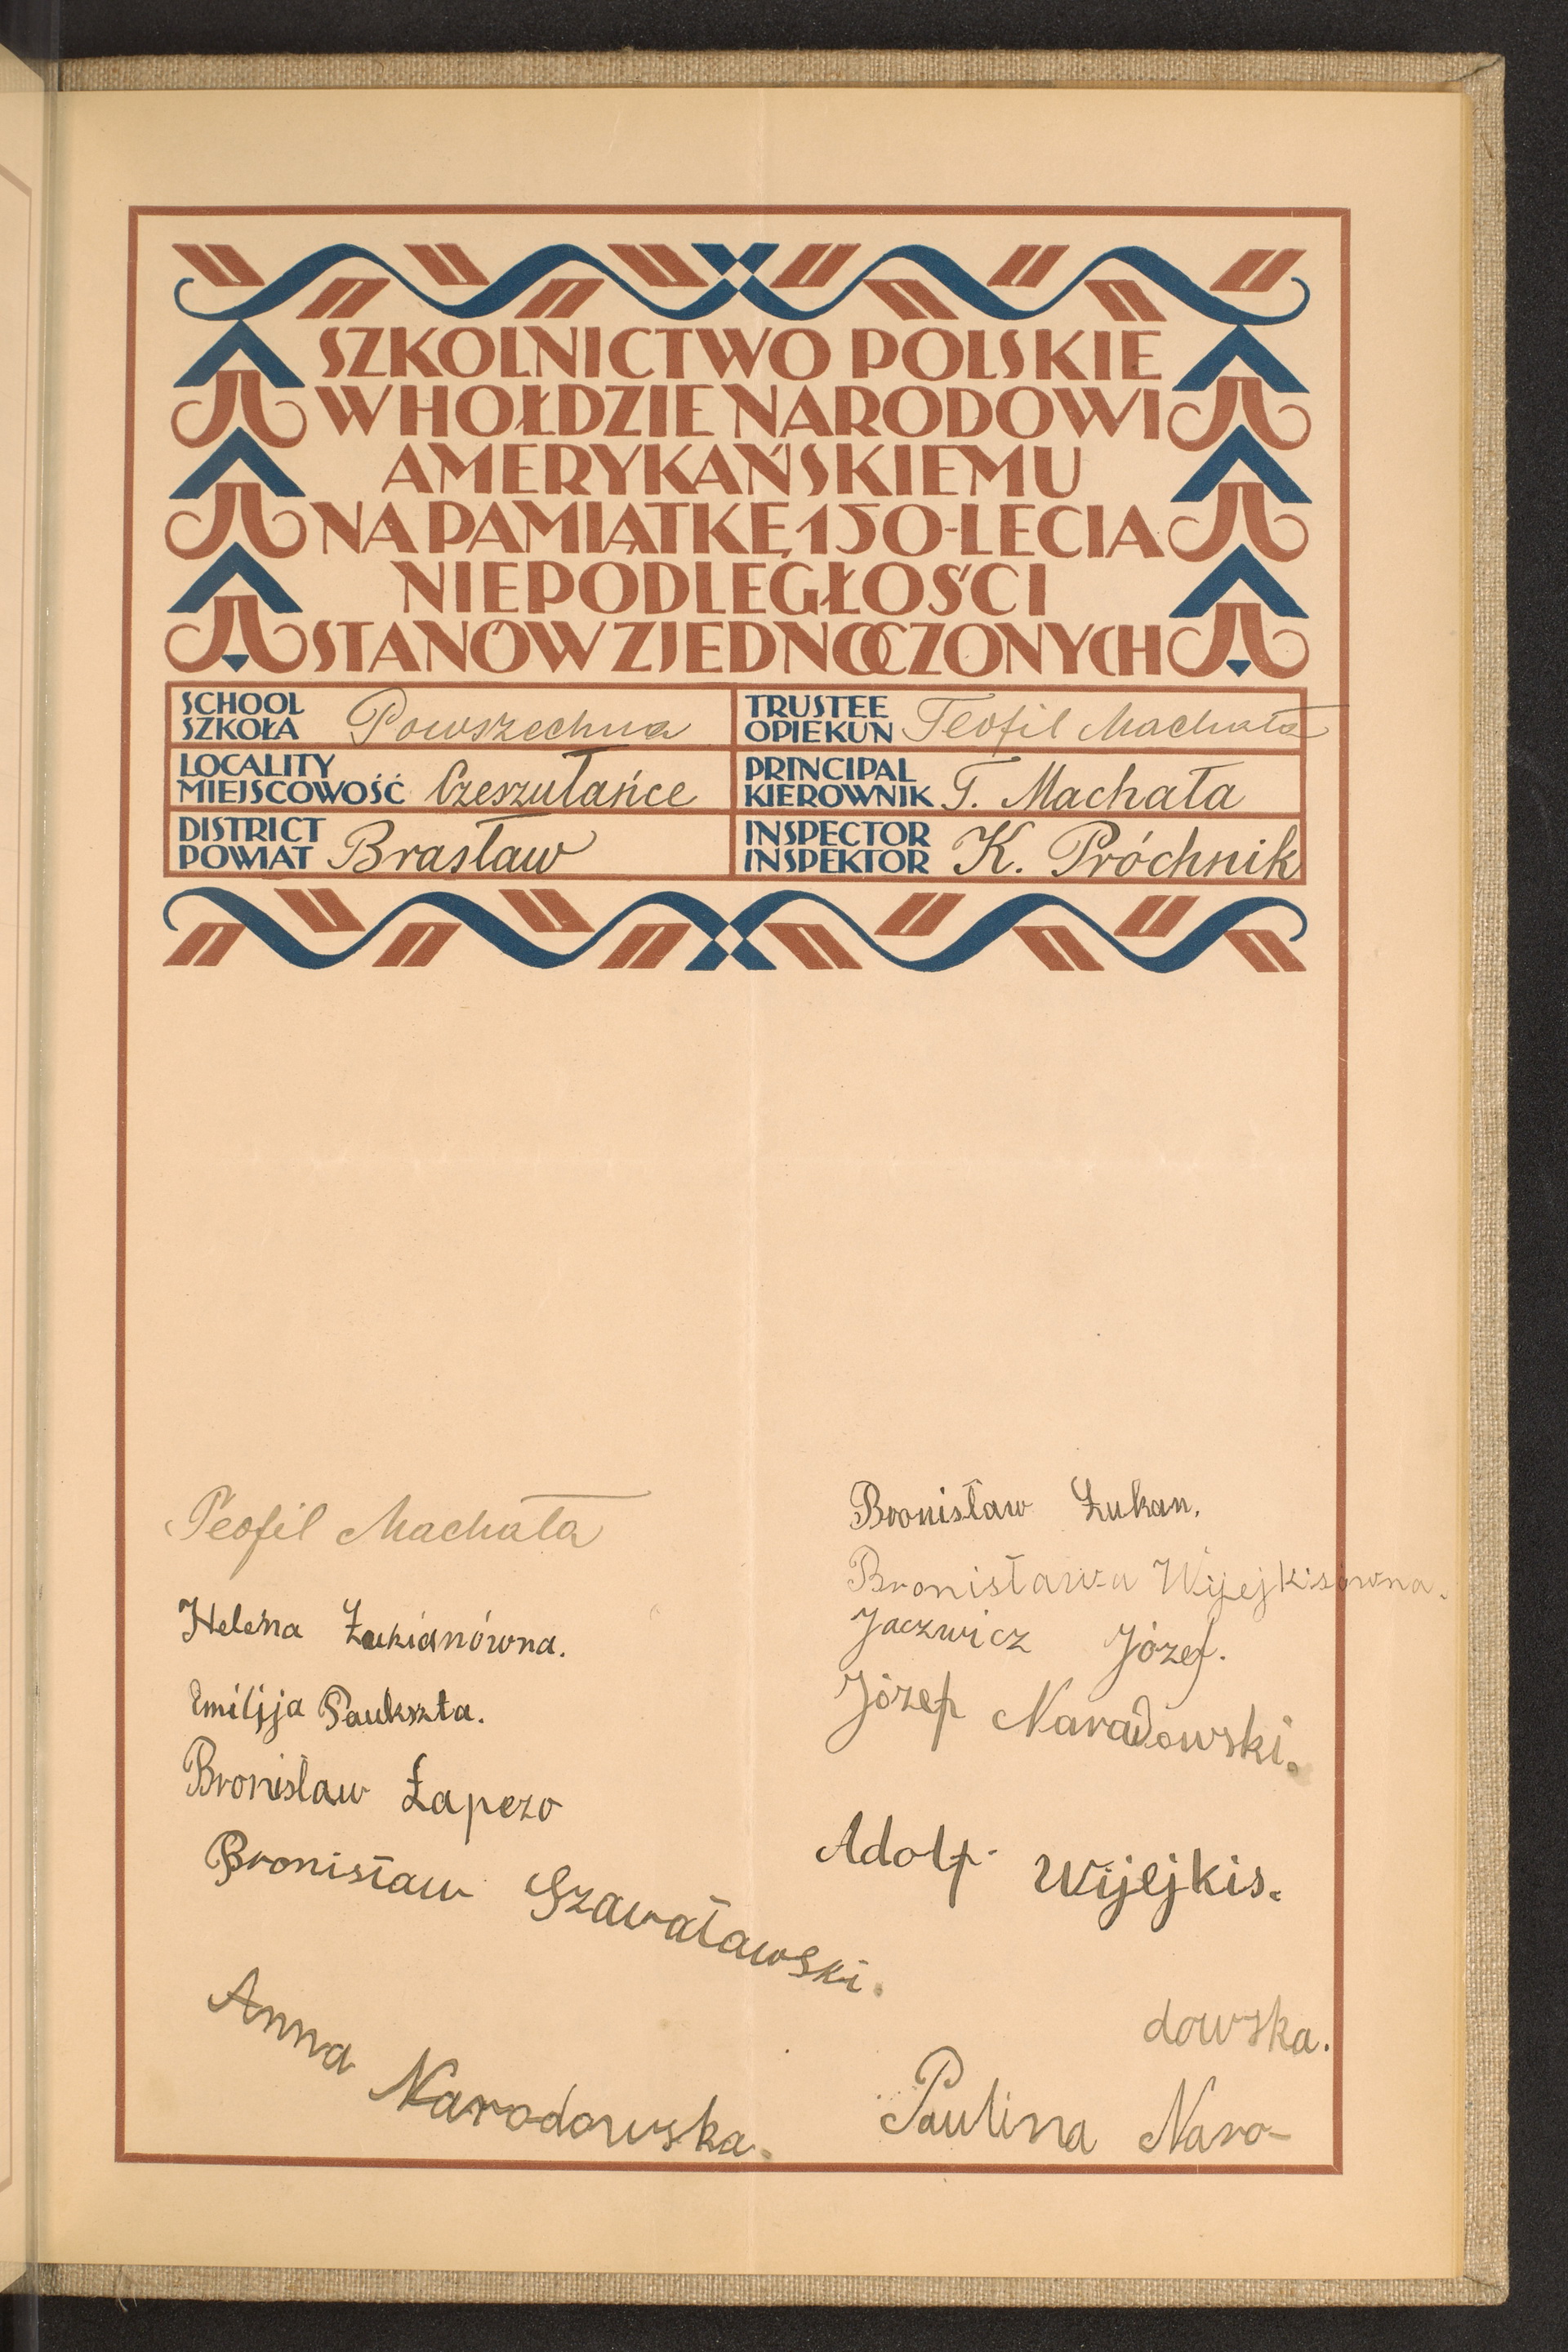 SZKOLNICTWO POLSKIE
W HOŁDZIE NARODOWI
AMERYKAŃSKIEMU
NA PAMIĄTKĘ 150-LECIA
NIEPODLEGŁOŚCI
STANÓW ZJEDNOCZONYCH
SCHOOL
SZKOŁA Powszechna
TRUSTEE
OPIEKUN Teofil Machała
LOCALITY
MIEJSCOWOŚĆ Czeszułańce
PRINCIPAL
KIEROWNIK T. Machała
DISTRICT
POWIAT Brasław
INSPECTOR
INSPEKTOR K. Próchnik
Teofil Machała
Helena Łukianówna.
Emilija Paukszta.
Bronisław Łapezo
Bronisław Szawaławski.
Anna Narodowska.
Bronisław Łukan.
Bronisława Wijejkisówna.
Jaczwicz Józef.
Józep Naradowski.
Adolf Wijejkis.
dowska.
Paulina Naro-